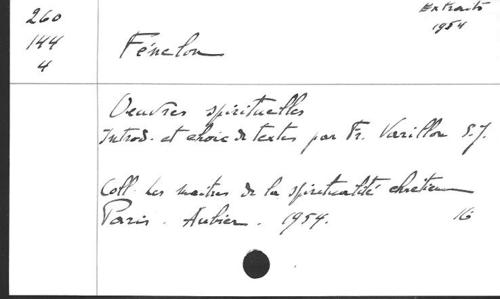 260
144
4
Extraits
1954
Fénelon
Oeuvres spirituelles
Introd. et choix de textes par Fr. Varillon S.J.
Coll. Les maitres de la spiritualité chrétienne
Paris. Aubier. 1954.
16